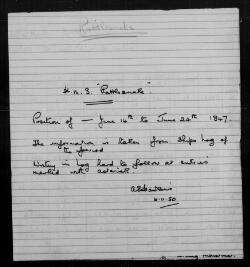 Rattlesnake
H.M.S. "Rattlesnake"
Position of — June 14th to June 24th 1847.
The information is taken from Ships Log of
the period
Writing in Log hard to follow at entries
marked with asterisk.
4.11.50